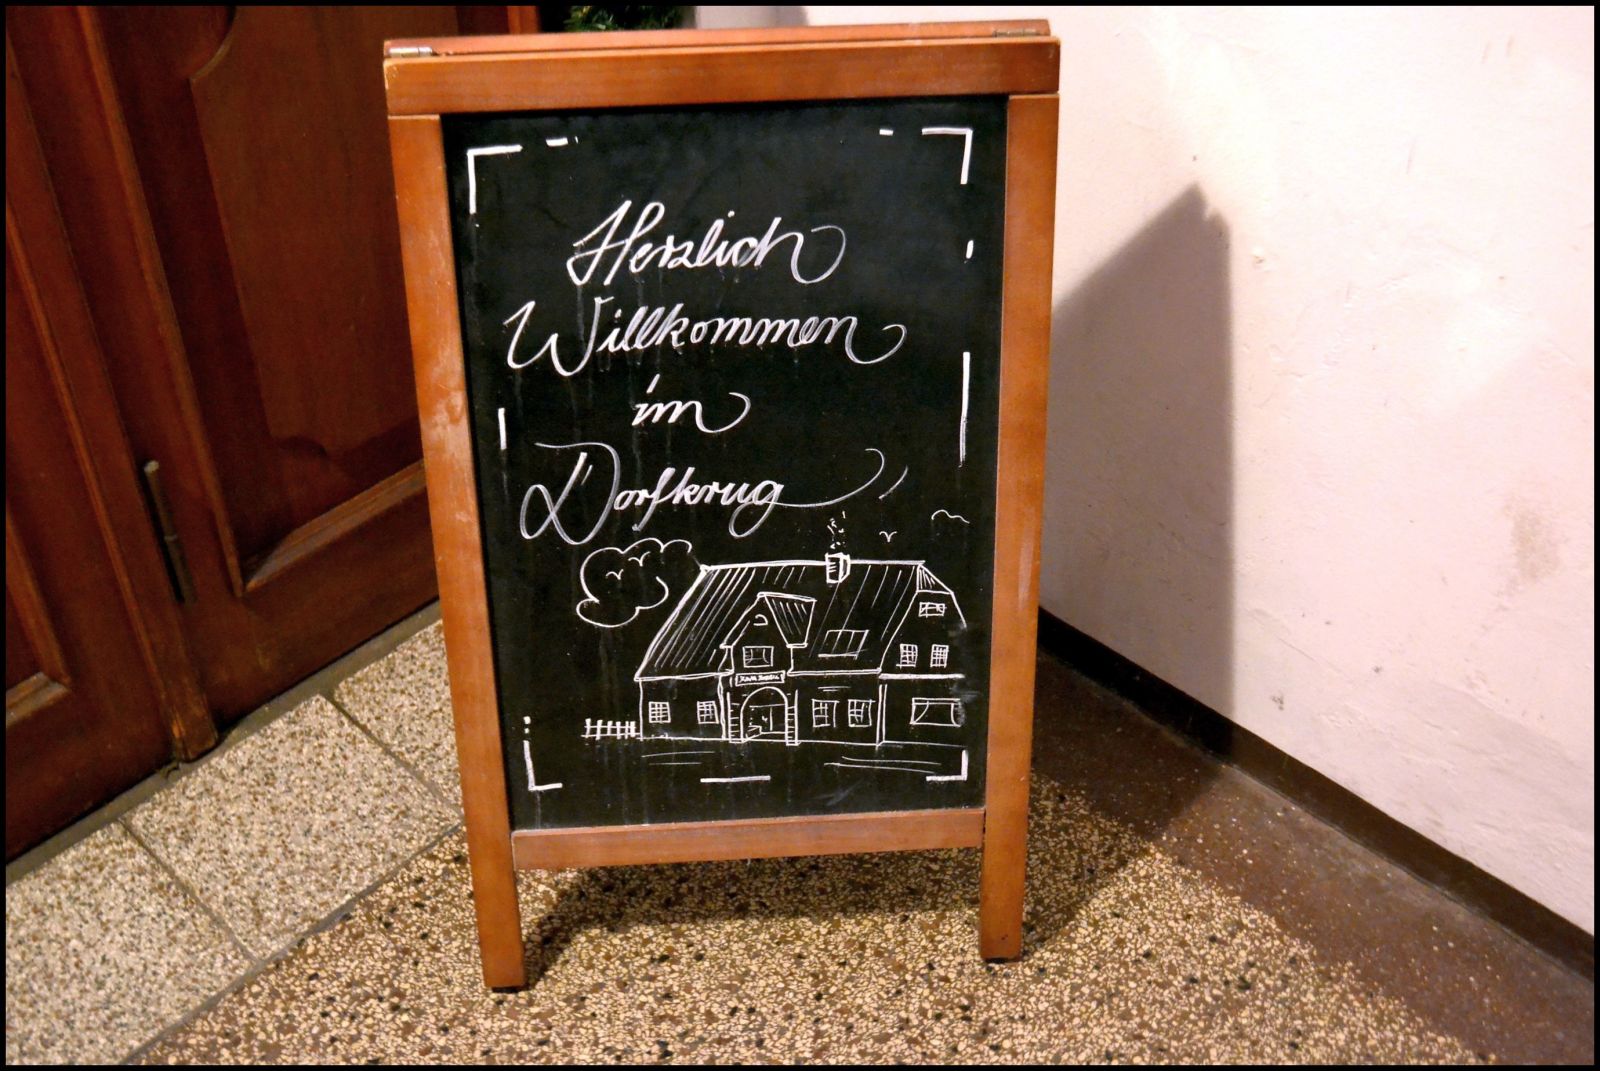 Herzlich
Willkommen
im
Dorfkrug